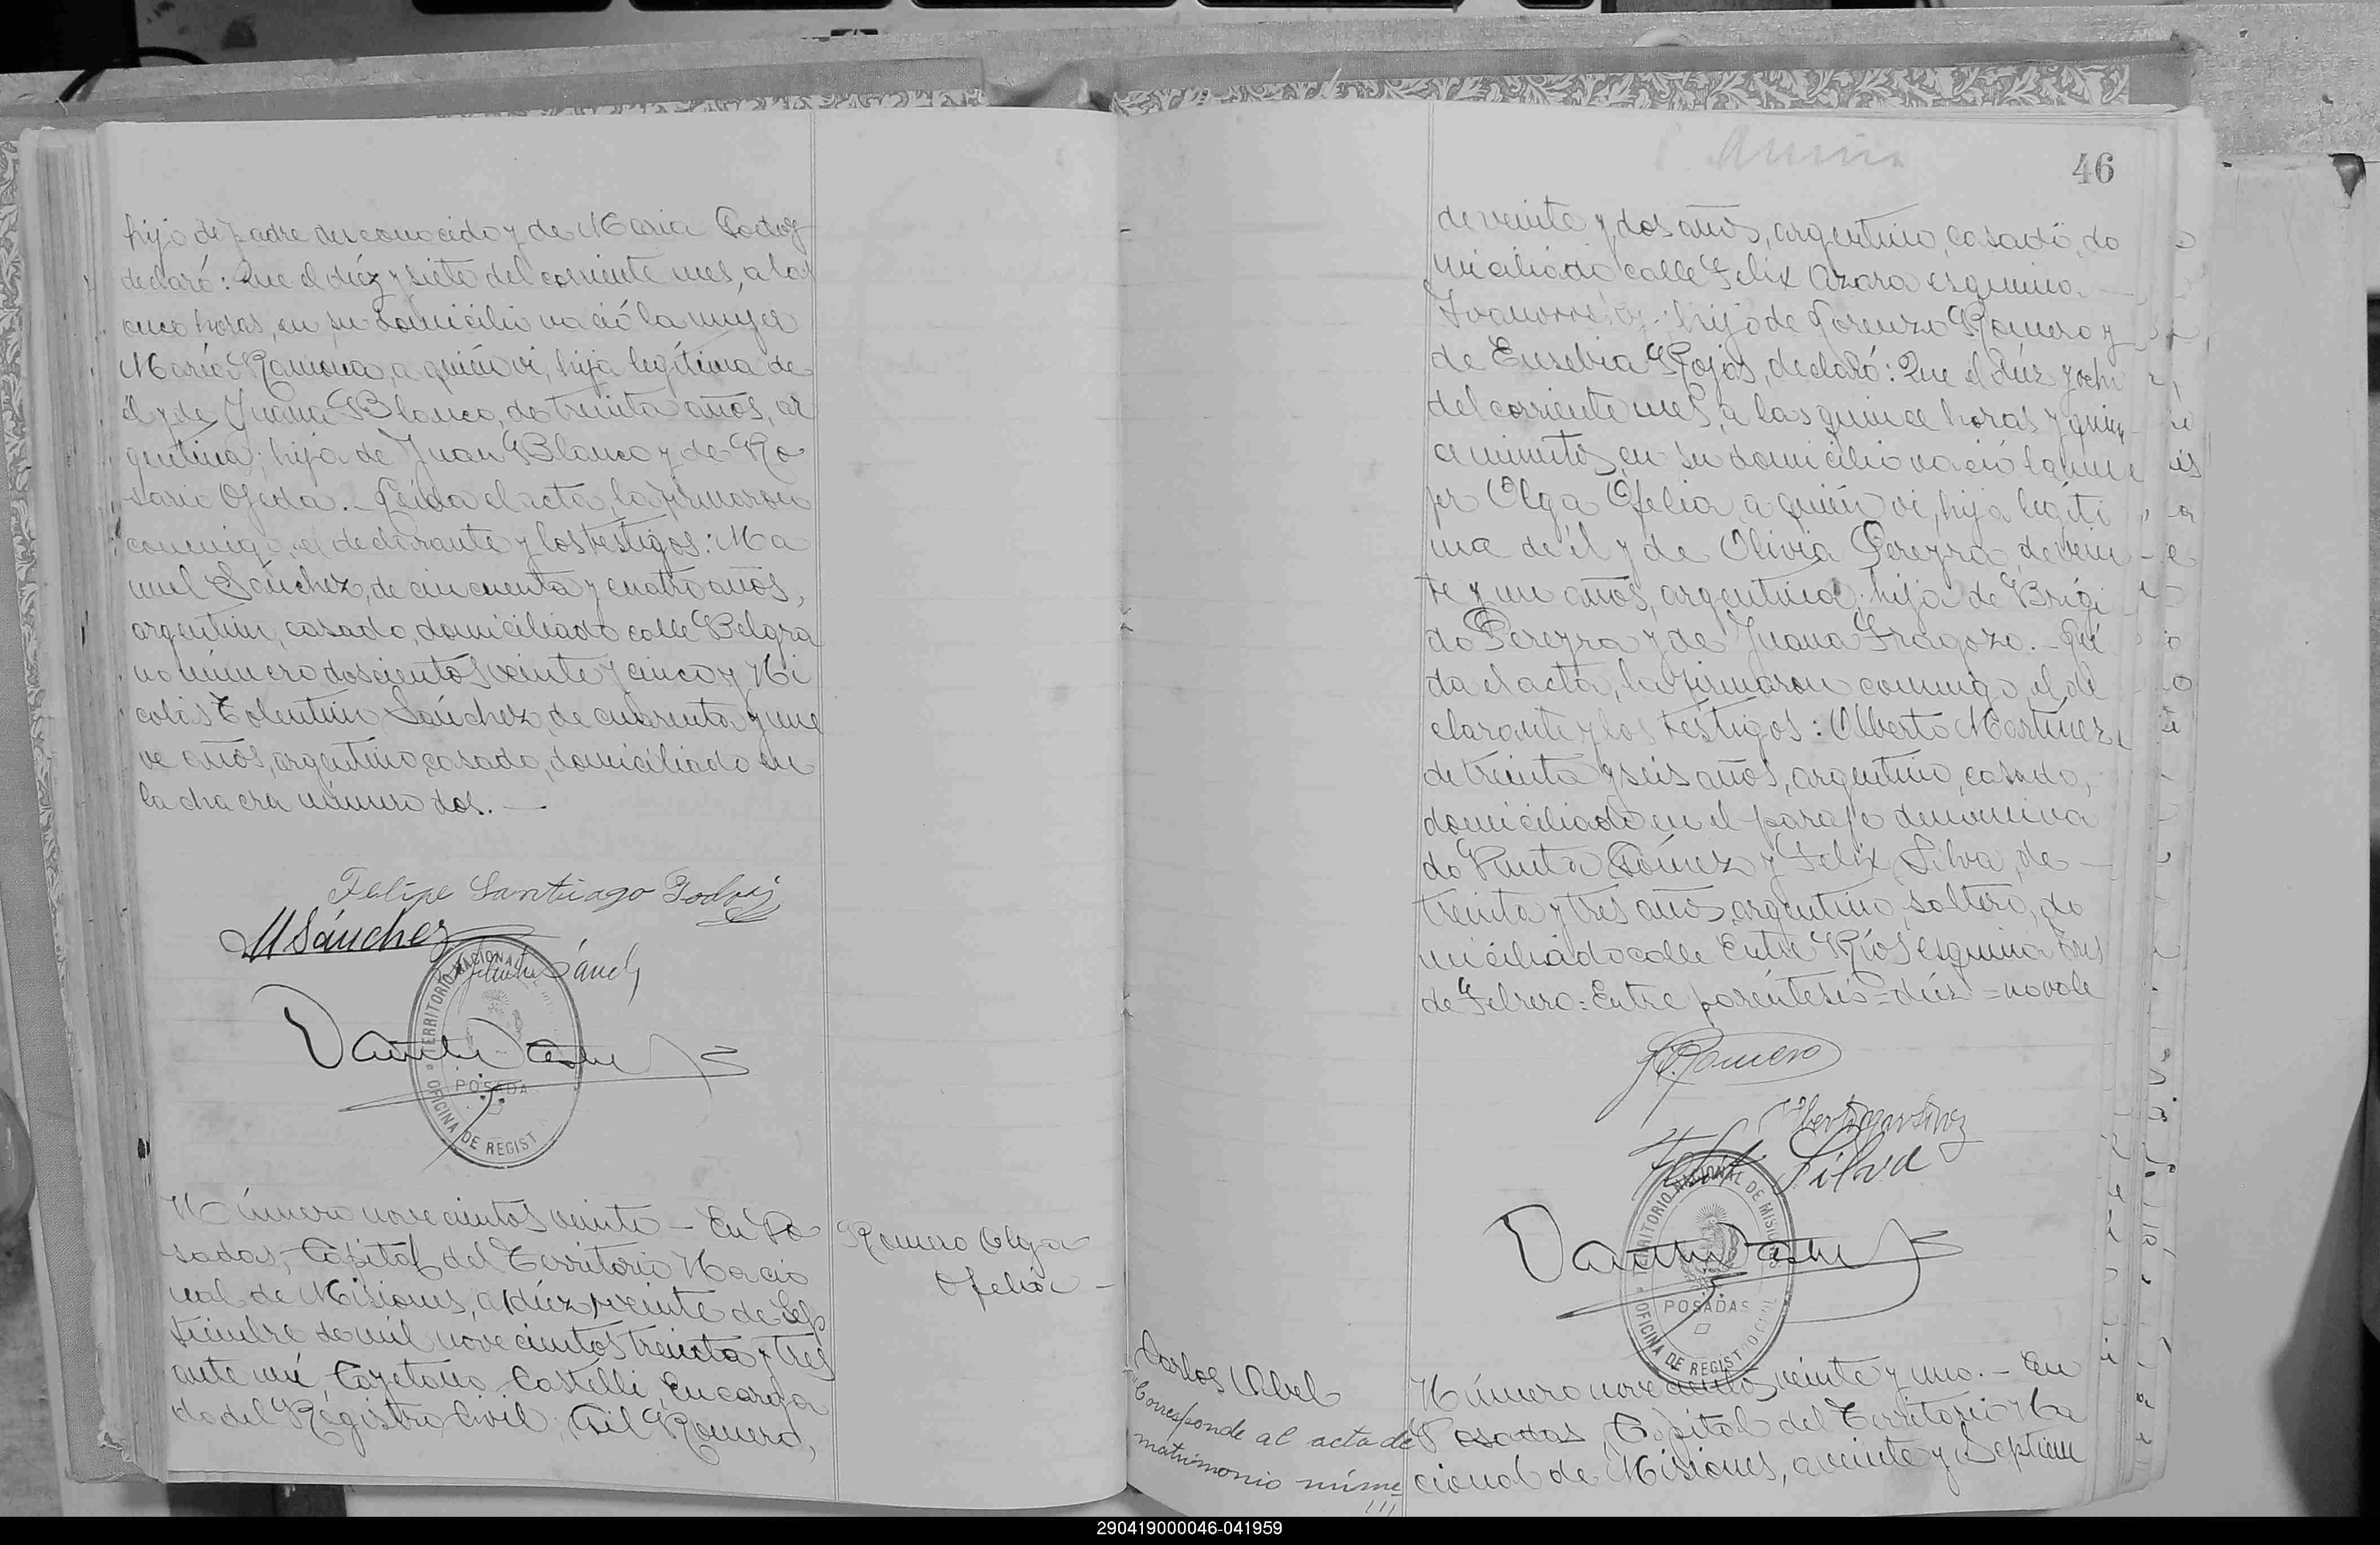 hijo de padre desconocido y de Maria Godoy
declaró: Que el diéz y siete del corriente mes, a las
once horas, en su domicilio nació la mujer
María Ramona, a quién vi, hija legítima de
él y de Juana Blanco, de treinta años, ar
gentina; hija de Juan Blanco y de Ro
sario Ojeda. - Leida el acta, la firmaron
conmigo, el declarante y los testigos: Ma
nuel Sánchez, de cincuenta y cuatro años,
argentino, casado, domiciliado calle Belgra
no número doscientos veinte y cinco y Ni
colás Tolentino Sánchez, de cuarenta y nue
ve años, argentino, casado, domiciliado en
la chacra número dos. -
Felipe Santiago Godoy
M Sánchez
Sánch
TERRITORIO NACIONAL
POSADA
OFICINA DE REGIST
Número novecientos veinte - En Po
sadas, Capital del Territorio Nacio
nal de Misiones, a (diéz) veinte de Sep
tiembre de mil novecientos treinta y tres
ante mí, Cayetano Castelli, Encarga
do del Registro Civil; Gil Romero,
Romero Olga
Ofelia -
46
de veinte y dos años, argentino, casado, do
miciliado calle Felix Azara esquina
hijo de Lorenzo Romero y
de Eusebia Rojas, declaró: Que el diéz y ocho
del corriente mes, a las quince horas y quin
ce minutos, en su domicilio nació la mu
jer Olga Ofelia, a quién vi, hija legíti
ma de él y de Olivia Pereyra, de vein
te y un años, argentina; hija de Brígi
do Pereyra y de Juana Fragozo. - Leí
da el acta, la firmaron conmigo, el de
clarante y los testigos: Alberto Martínez,
de treinta y seis años, argentino, casado,
domiciliado en el paraje denomina
do Punta Gómez y Felix Silva, de
treinta y tres años, argentino, soltero, do
miciliado calle Entre Ríos esquina tres
de Febrero: Entre paréntesis = diéz = no vale
G. Romero
Alberto Martinez
Felix Silva
TERRITORIO NACIONAL DE MISIONES
POSADAS
OFICINA DE REGIST
Carlos Abel
Corresponde al acta de
matrimonio núme
Número novecientos veinte y uno. - En
Posadas, Capital del Territorio Na
cional de Misiones, a veinte y Septiem
290419000046-041959